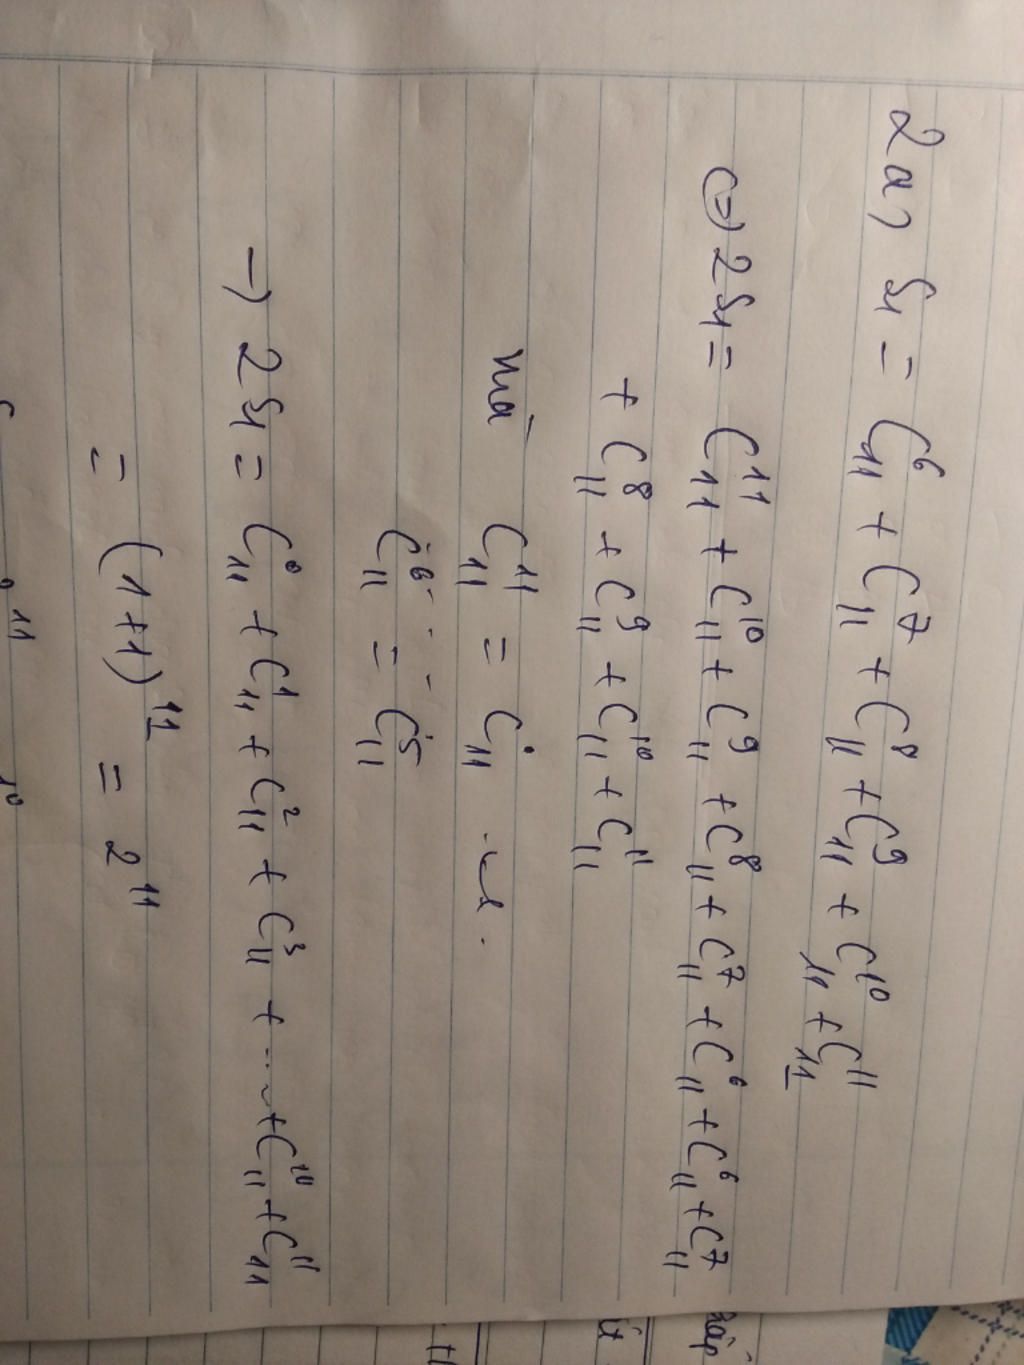 2a) S₁ = C₁₁⁶ + C₁₁⁷ + C₁₁⁸ + C₁₁⁹ + C₁₁¹⁰ + C₁₁¹¹
(=) 2S₁ = C₁₁¹¹ + C₁₁¹⁰ + C₁₁⁹ + C₁₁⁸ + C₁₁⁷ + C₁₁⁶ + C₁₁⁶ + C₁₁⁷
+ C₁₁⁸ + C₁₁⁹ + C₁₁¹⁰ + C₁₁¹¹
mà C₁₁¹¹ = C₁₁⁰
C₁₁⁶ = C₁₁⁵
→ 2S₁ = C₁₁⁰ + C₁₁¹ + C₁₁² + C₁₁³ + ... + C₁₁¹⁰ + C₁₁¹¹
= (1+1)¹¹ = 2¹¹